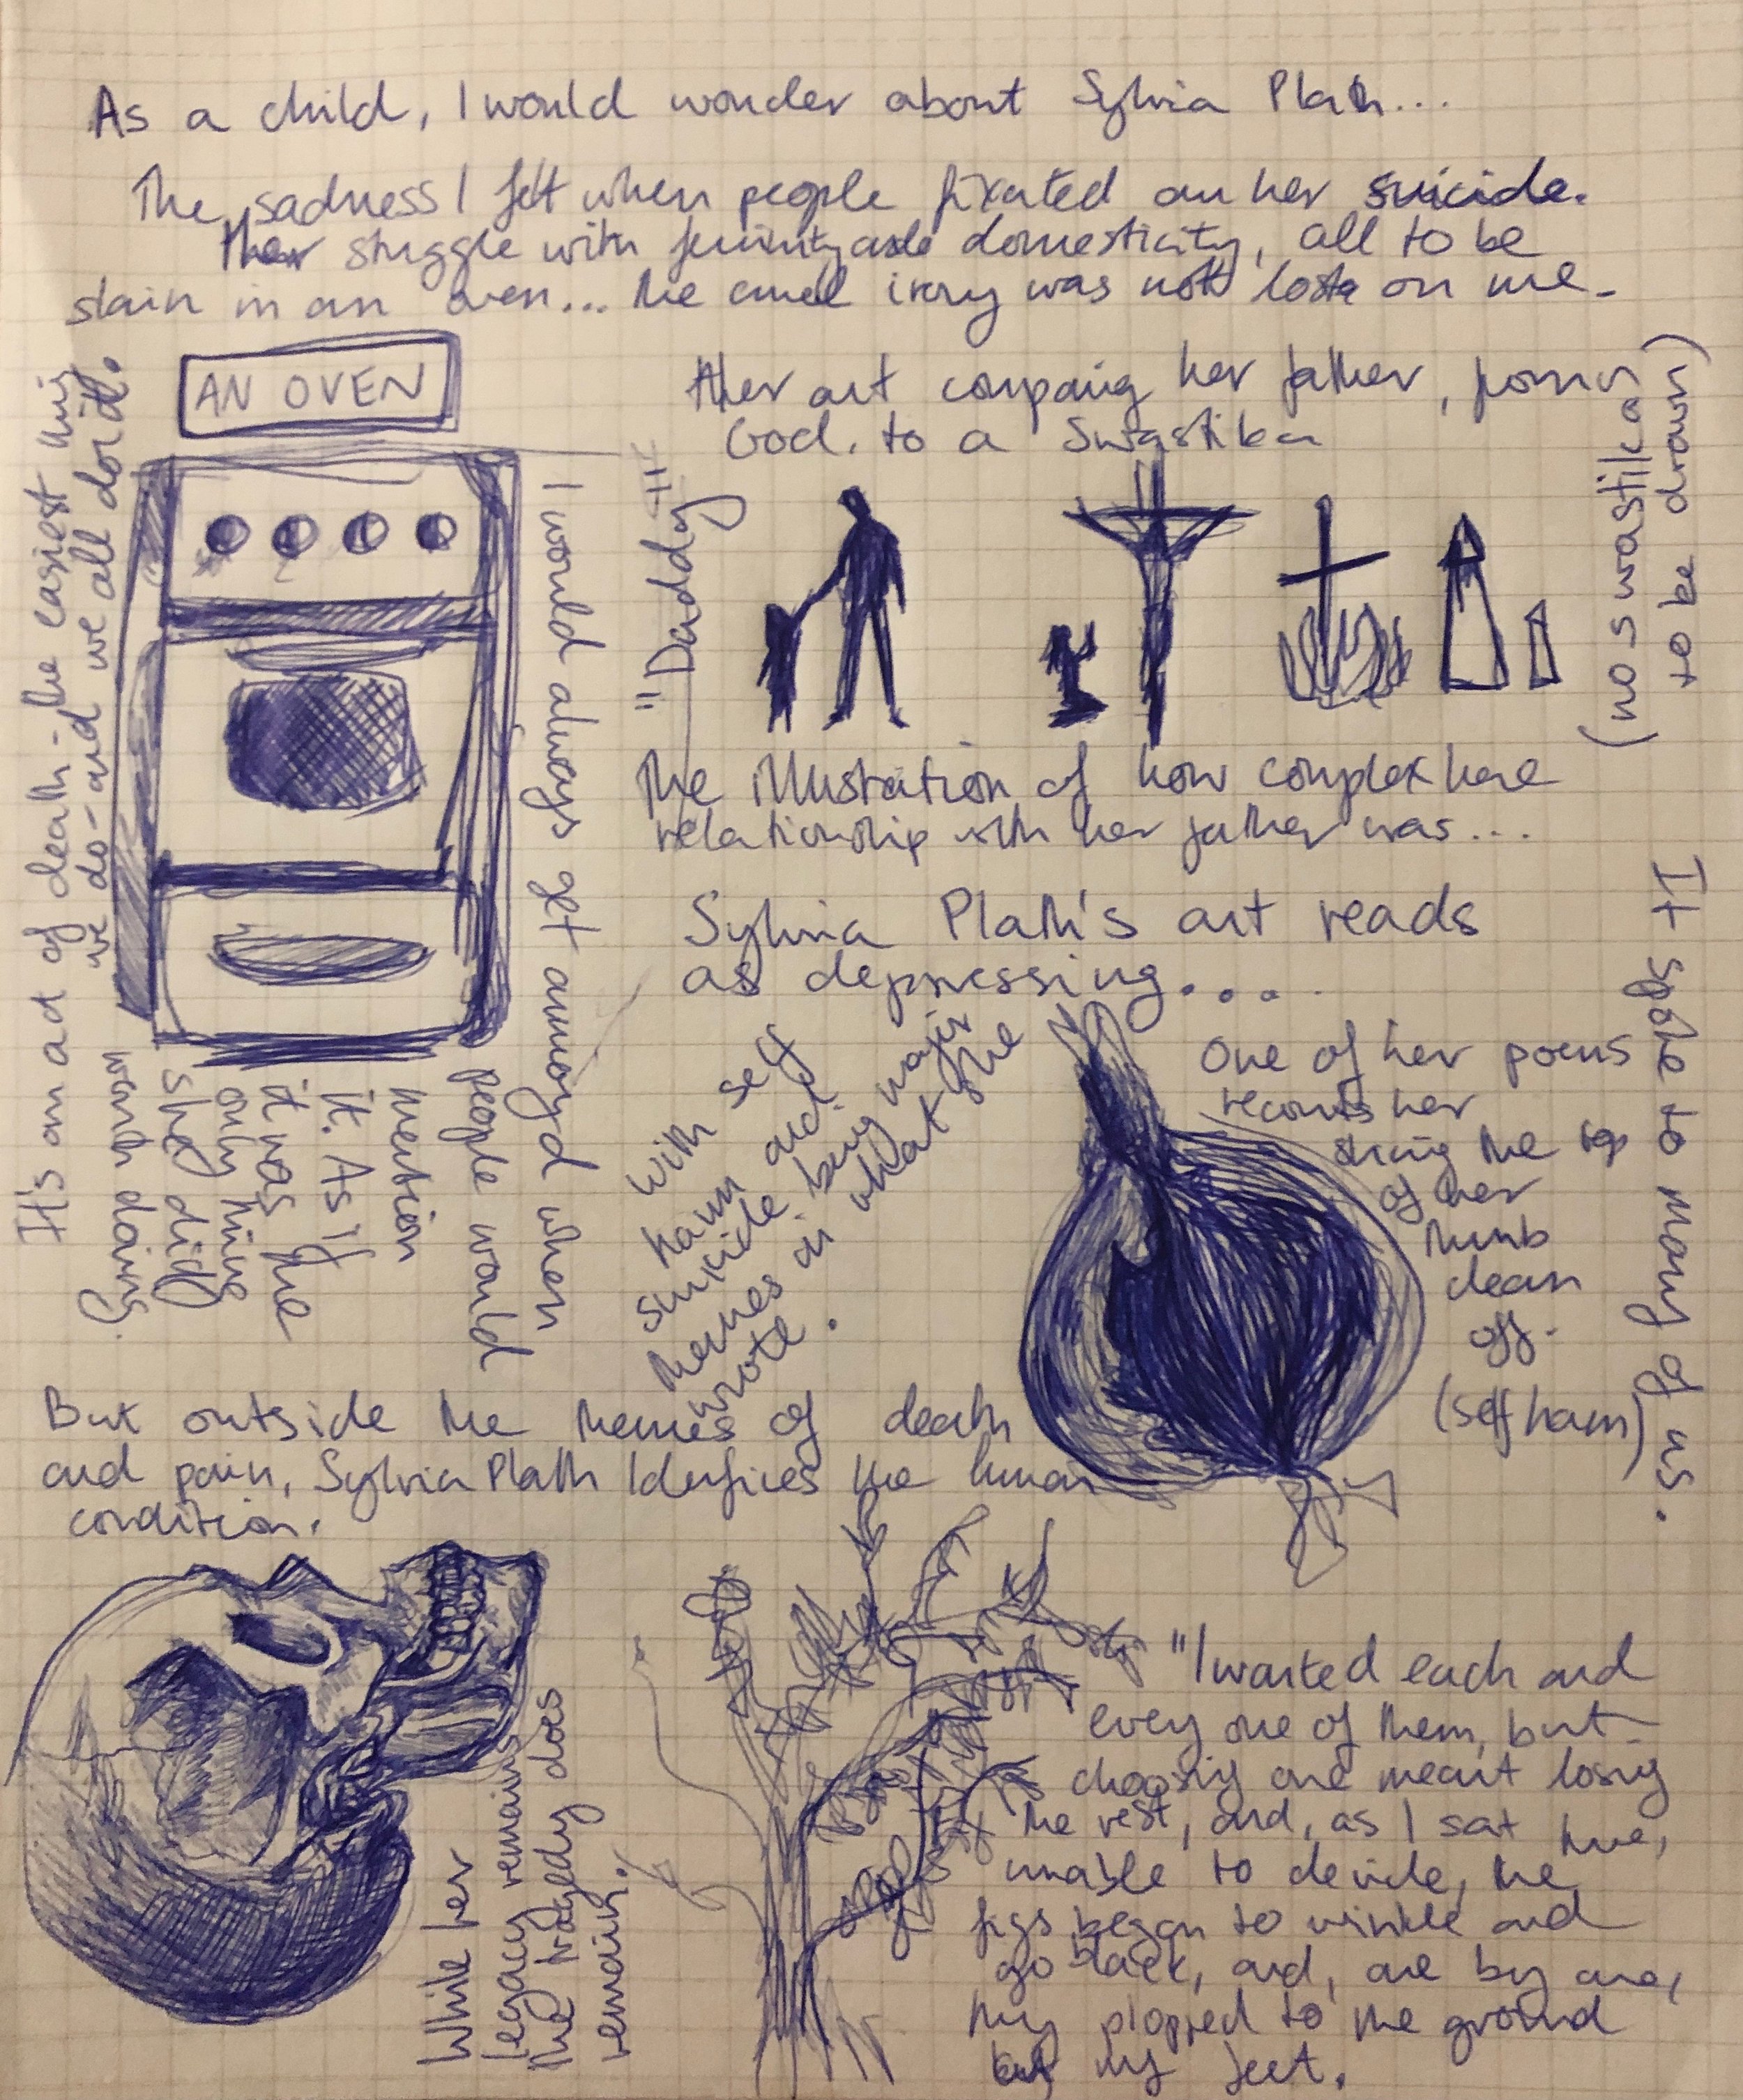 As a child, I would wonder about Sylvia Plath...
The sadness I felt when people fixated on her suicide.
Her struggle with domesticity, all to be
slain in an oven... the cruel irony was not lost on me.
AN OVEN
It's an act of death - the easiest thing
we do - and we all do it.
I would always get annoyed when
people would
mention
it. As if
it was the
only thing
she did
worth doing.
Her art comparing her father, from
God. to a Swastika
(no swastika
to be drawn)
"Daddy"
The illustration of how complex here
relationship with her father was...
Sylvia Plath's art reads
as depressing....
With self
harm and
suicide being major
themes in what she
wrote.
One of her poems
recounts her
slicing the top
of her
thumb
clean
off.
(self harm)
It spoke to many of us.
But outside the themes of death
and pain, Sylvia Plath Identifies the human
condition.
While her
legacy remains
the tragedy does
remain.
"I wanted each and
every one of them, but
choosing one meant losing
the rest, and, as I sat
unable to decide, the
figs began to wrinkle and
go black, and, one by one,
they plopped to the ground
my feet.